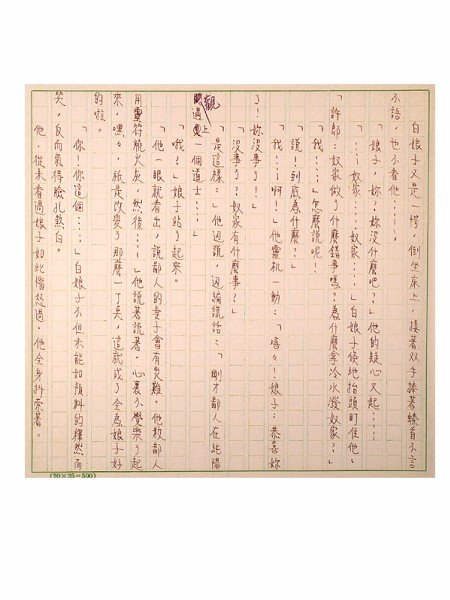 白娘子又是一愕,倒坐床上,接著双手捧著螓首不言
不語,也不看他⋯⋯
「娘子,妳?妳沒什麼吧?」他的疑心又起⋯⋯
「⋯⋯奴家⋯⋯奴家⋯⋯」白娘子倏地抬頭盯住他:
「許郎:奴家做了什麼錯事嗎?為什麼拿冷水潑奴家?」
「我⋯⋯」怎麼說呢!
「說!到底為什麼?」
「我⋯⋯啊!」他靈机一動:「嘻々!娘子:恭喜妳
了!妳沒事了!」
「沒事了?奴家有什麼事?」
「是這樣?」他邊說,邊編謊話:「剛才鄙人在純陽
觀過上一個道士⋯⋯」
「哦?」娘子站了起來。
「他一眼就看出,說鄙人的妻子會有災難。他教鄙人
用靈符燒火点,然後⋯⋯」他說著說著,心裏不覺樂了起
來,嘿々,祇是改變了那麼一丁矣,這就成了全為娘子好
的啦。
「你!你這個⋯⋯」白娘子不但未能如預料的釋然而
笑,反而氣得臉孔熱白。
他,從未看過娘子如此惱怒過,他全身抖索著。
(20×25=500)